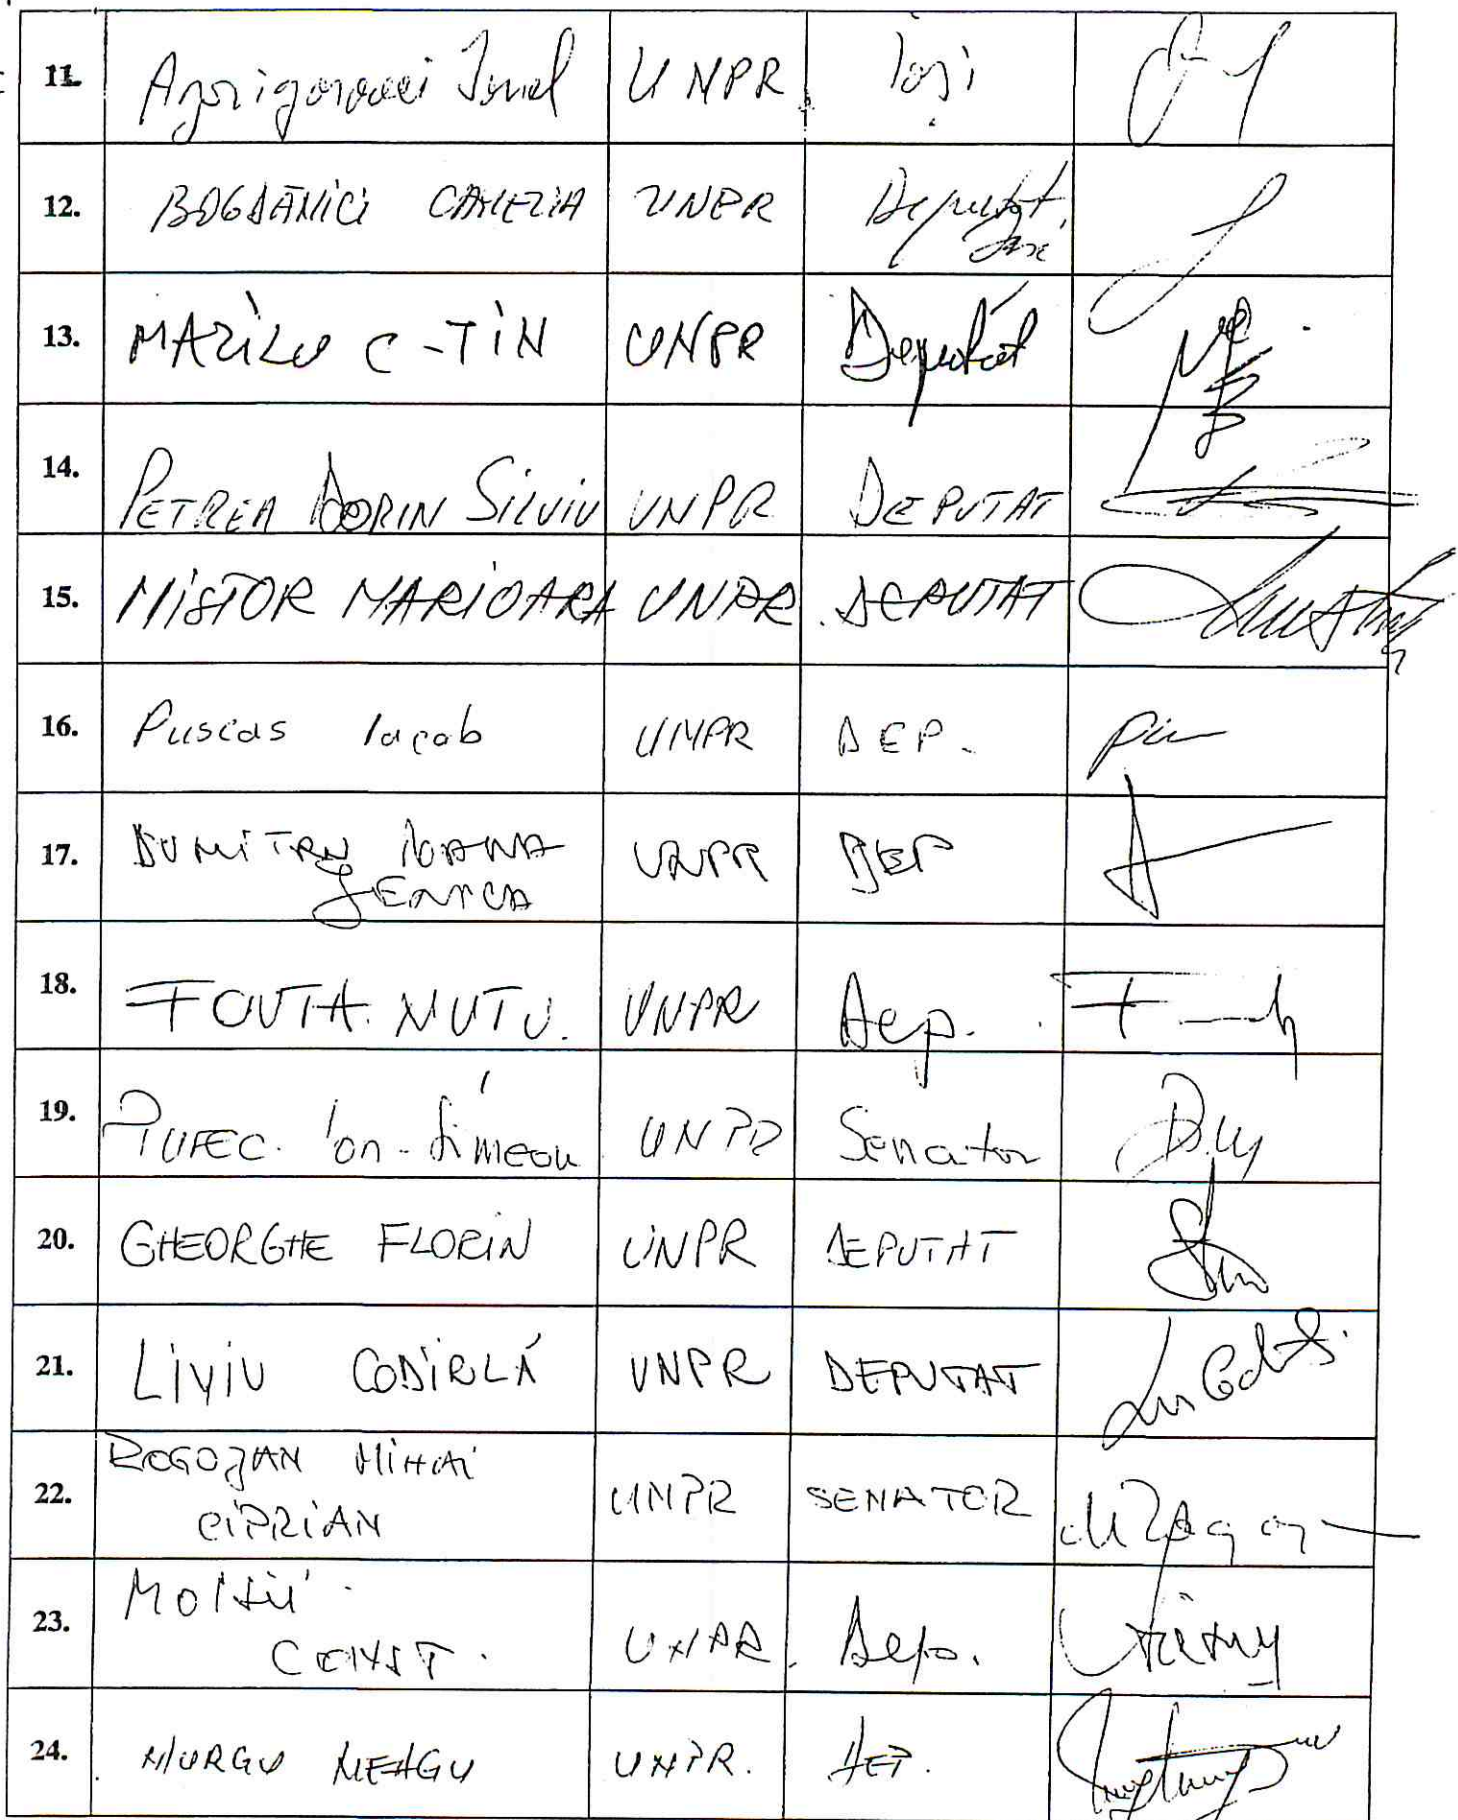 11. Agrigoroaei Ionel UNPR Iași
12. BOGDĂNICI CAMELIA UNPR Deputat,
13. MAZILU C-TIN UNPR Deputat
14. PETREA DORIN SILVIU UNPR DEPUTAT
15. NISTOR MARIOARA UNPR. DEPUTAT
16. Puscas Iacob UNPR DEP.
17. DUMITRU IOANA UNPR DEP
JENICA
18. FOUTA. NUTU. UNPR Dep.
19. TUFEC. Ion-Simeon UNPR Senator
20. GHEORGHE FLORIN UNPR DEPUTAT
21. LIVIU CODÎRLĂ UNPR DEPUTAT
ROGOJAN MIHAI
22. UNPR SENATOR
CIPRIAN
23. MOISII
CONST. UNPR. Dep.
24. MURGU NEAGU UNPR. DEP.